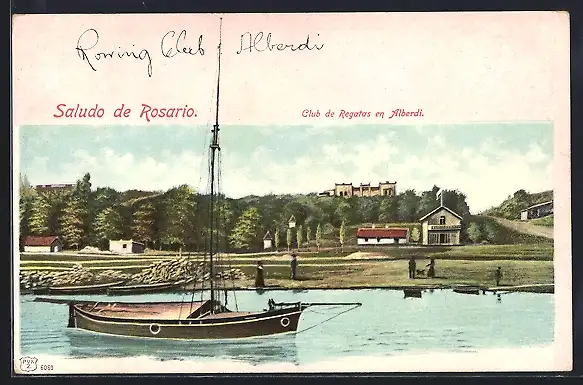 Rowing Club Alberdi
Saludo de Rosario.
Club de Regatas en Alberdi.
6069